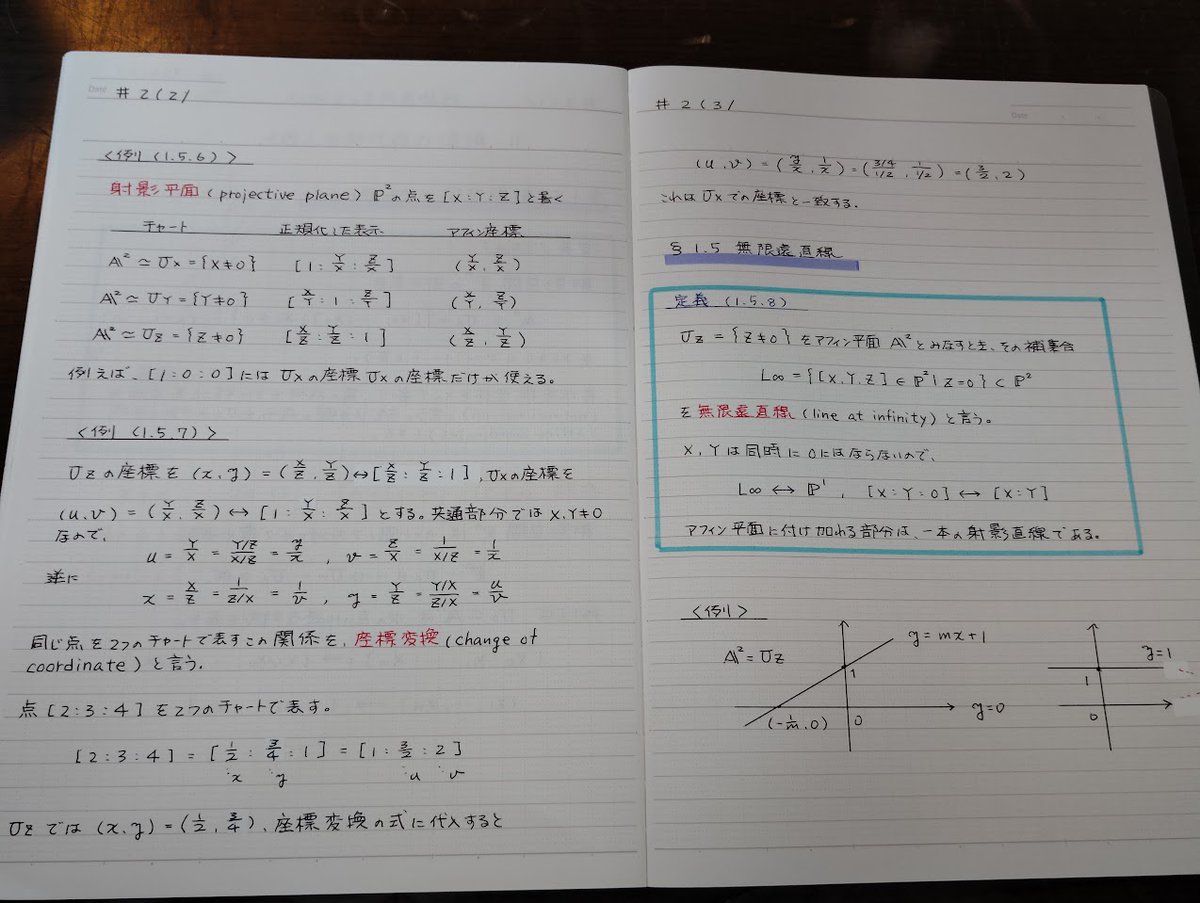 Date
# 2 (2/
<例 (1.5.6)>
射影平面 (projective plane) ℙ²の点を [X:Y:Z] と書く
チャート 正規化した表示 アフィン座標
𝔸² ≃ U_X = {X≠0} [1 : Y/X : Z/X] (Y/X, Z/X)
𝔸² ≃ U_Y = {Y≠0} [X/Y : 1 : Z/Y] (X/Y, Z/Y)
𝔸² ≃ U_Z = {Z≠0} [X/Z : Y/Z : 1] (X/Z, Y/Z)
例えば、[1:0:0]には U_Xの座標 U_Xの座標だけが使える。
<例 (1.5.7)>
U_Z の座標を (x, y) = (X/Z, Y/Z) ↔ [X/Z : Y/Z : 1], U_Xの座標を
(u, v) = (Y/X, Z/X) ↔ [1 : Y/X : Z/X] とする。共通部分では X, Y≠0
なので、
u = Y/X = (Y/Z)/(X/Z) = y/x , v = Z/X = 1/(X/Z) = 1/x
逆に
x = X/Z = 1/(Z/X) = 1/v , y = Y/Z = (Y/X)/(Z/X) = u/v
同じ点を2つのチャートで表すこの関係を、座標変換 (change of
coordinate) と言う.
点 [2:3:4] を2つのチャートで表す。
[2:3:4] = [1/2 : 3/4 : 1] = [1 : 3/2 : 2]
x y u v
U_Z では (x, y) = (1/2, 3/4), 座標変換の式に代入すると
# 2 (3/
Date
(u, v) = (y/x, 1/x) = ((3/4)/(1/2), 1/(1/2)) = (3/2, 2)
これは U_X での座標と一致する.
§1.5 無限遠直線
定義 (1.5.8)
U_Z = {Z≠0} をアフィン平面 𝔸² とみなすとき、その補集合
L∞ = {[X, Y, Z] ∈ ℙ² | Z=0} ⊂ ℙ²
を 無限遠直線 (line at infinity) と言う。
X, Y は同時に0にはならないので、
L∞ ↔ ℙ¹ , [X:Y:0] ↔ [X:Y]
アフィン平面に付け加わる部分は、一本の射影直線である。
<例>
𝔸² = U_Z
y = mx+1
1
(-1/m, 0)
0
y=0
y=1
1
0